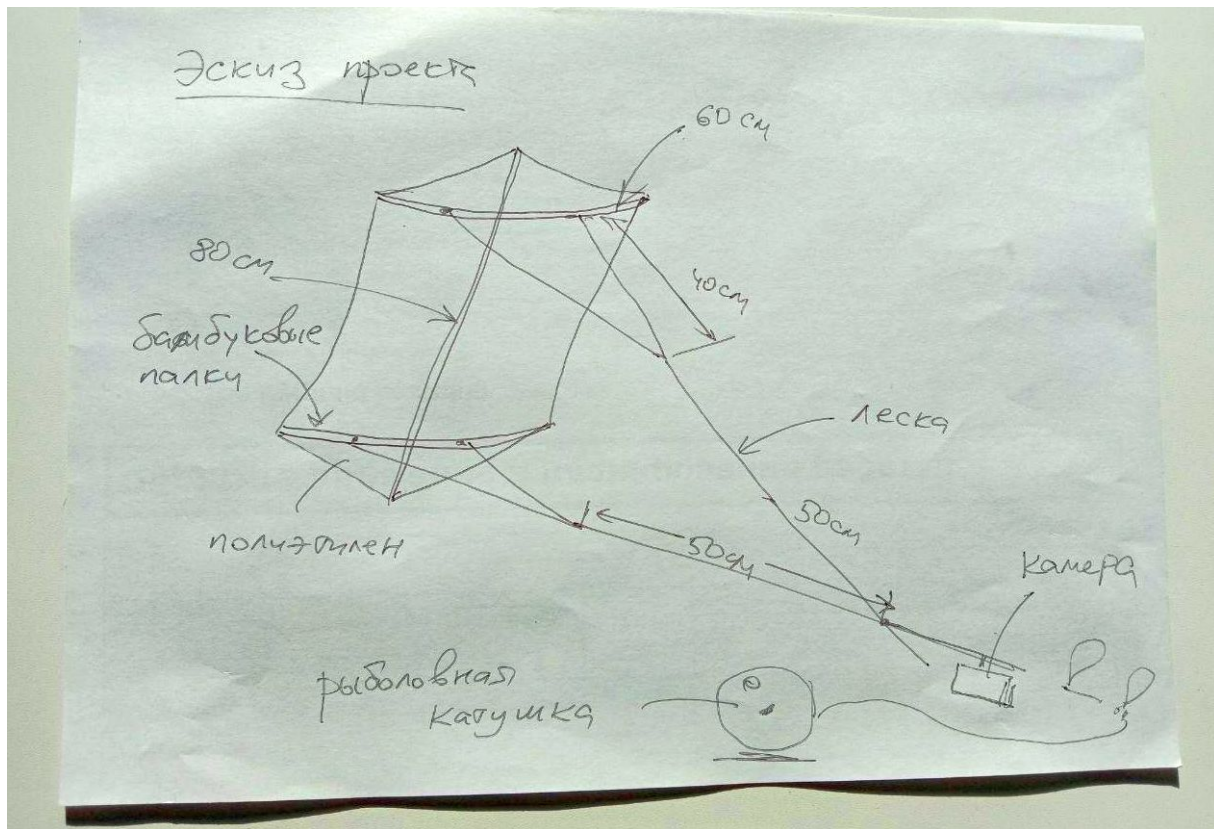 Эскиз проекта
60 см
80 см
40см
бамбуковые
палки
леска
50см
50см
полиэтилен
камера
рыболовная
катушка